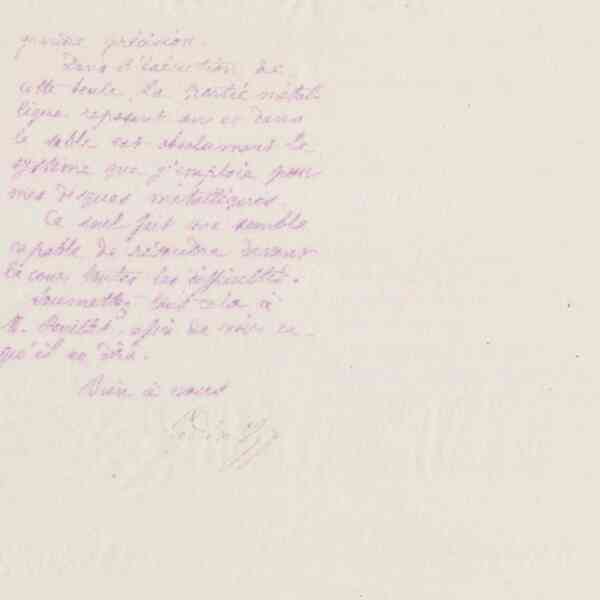 précision.
Dans l'exécution de
cette boule, la partie métal-
lique reposant sur et dans
le sable est absolument le
système que j'emploie pour
mes disques métalliques.
Ce seul fait me semble
capable de résoudre devant
la cour toutes les difficultés.
Soumettez tout cela à
M. afin de voir ce
qu'il en dira.
Bien à vous
Godin